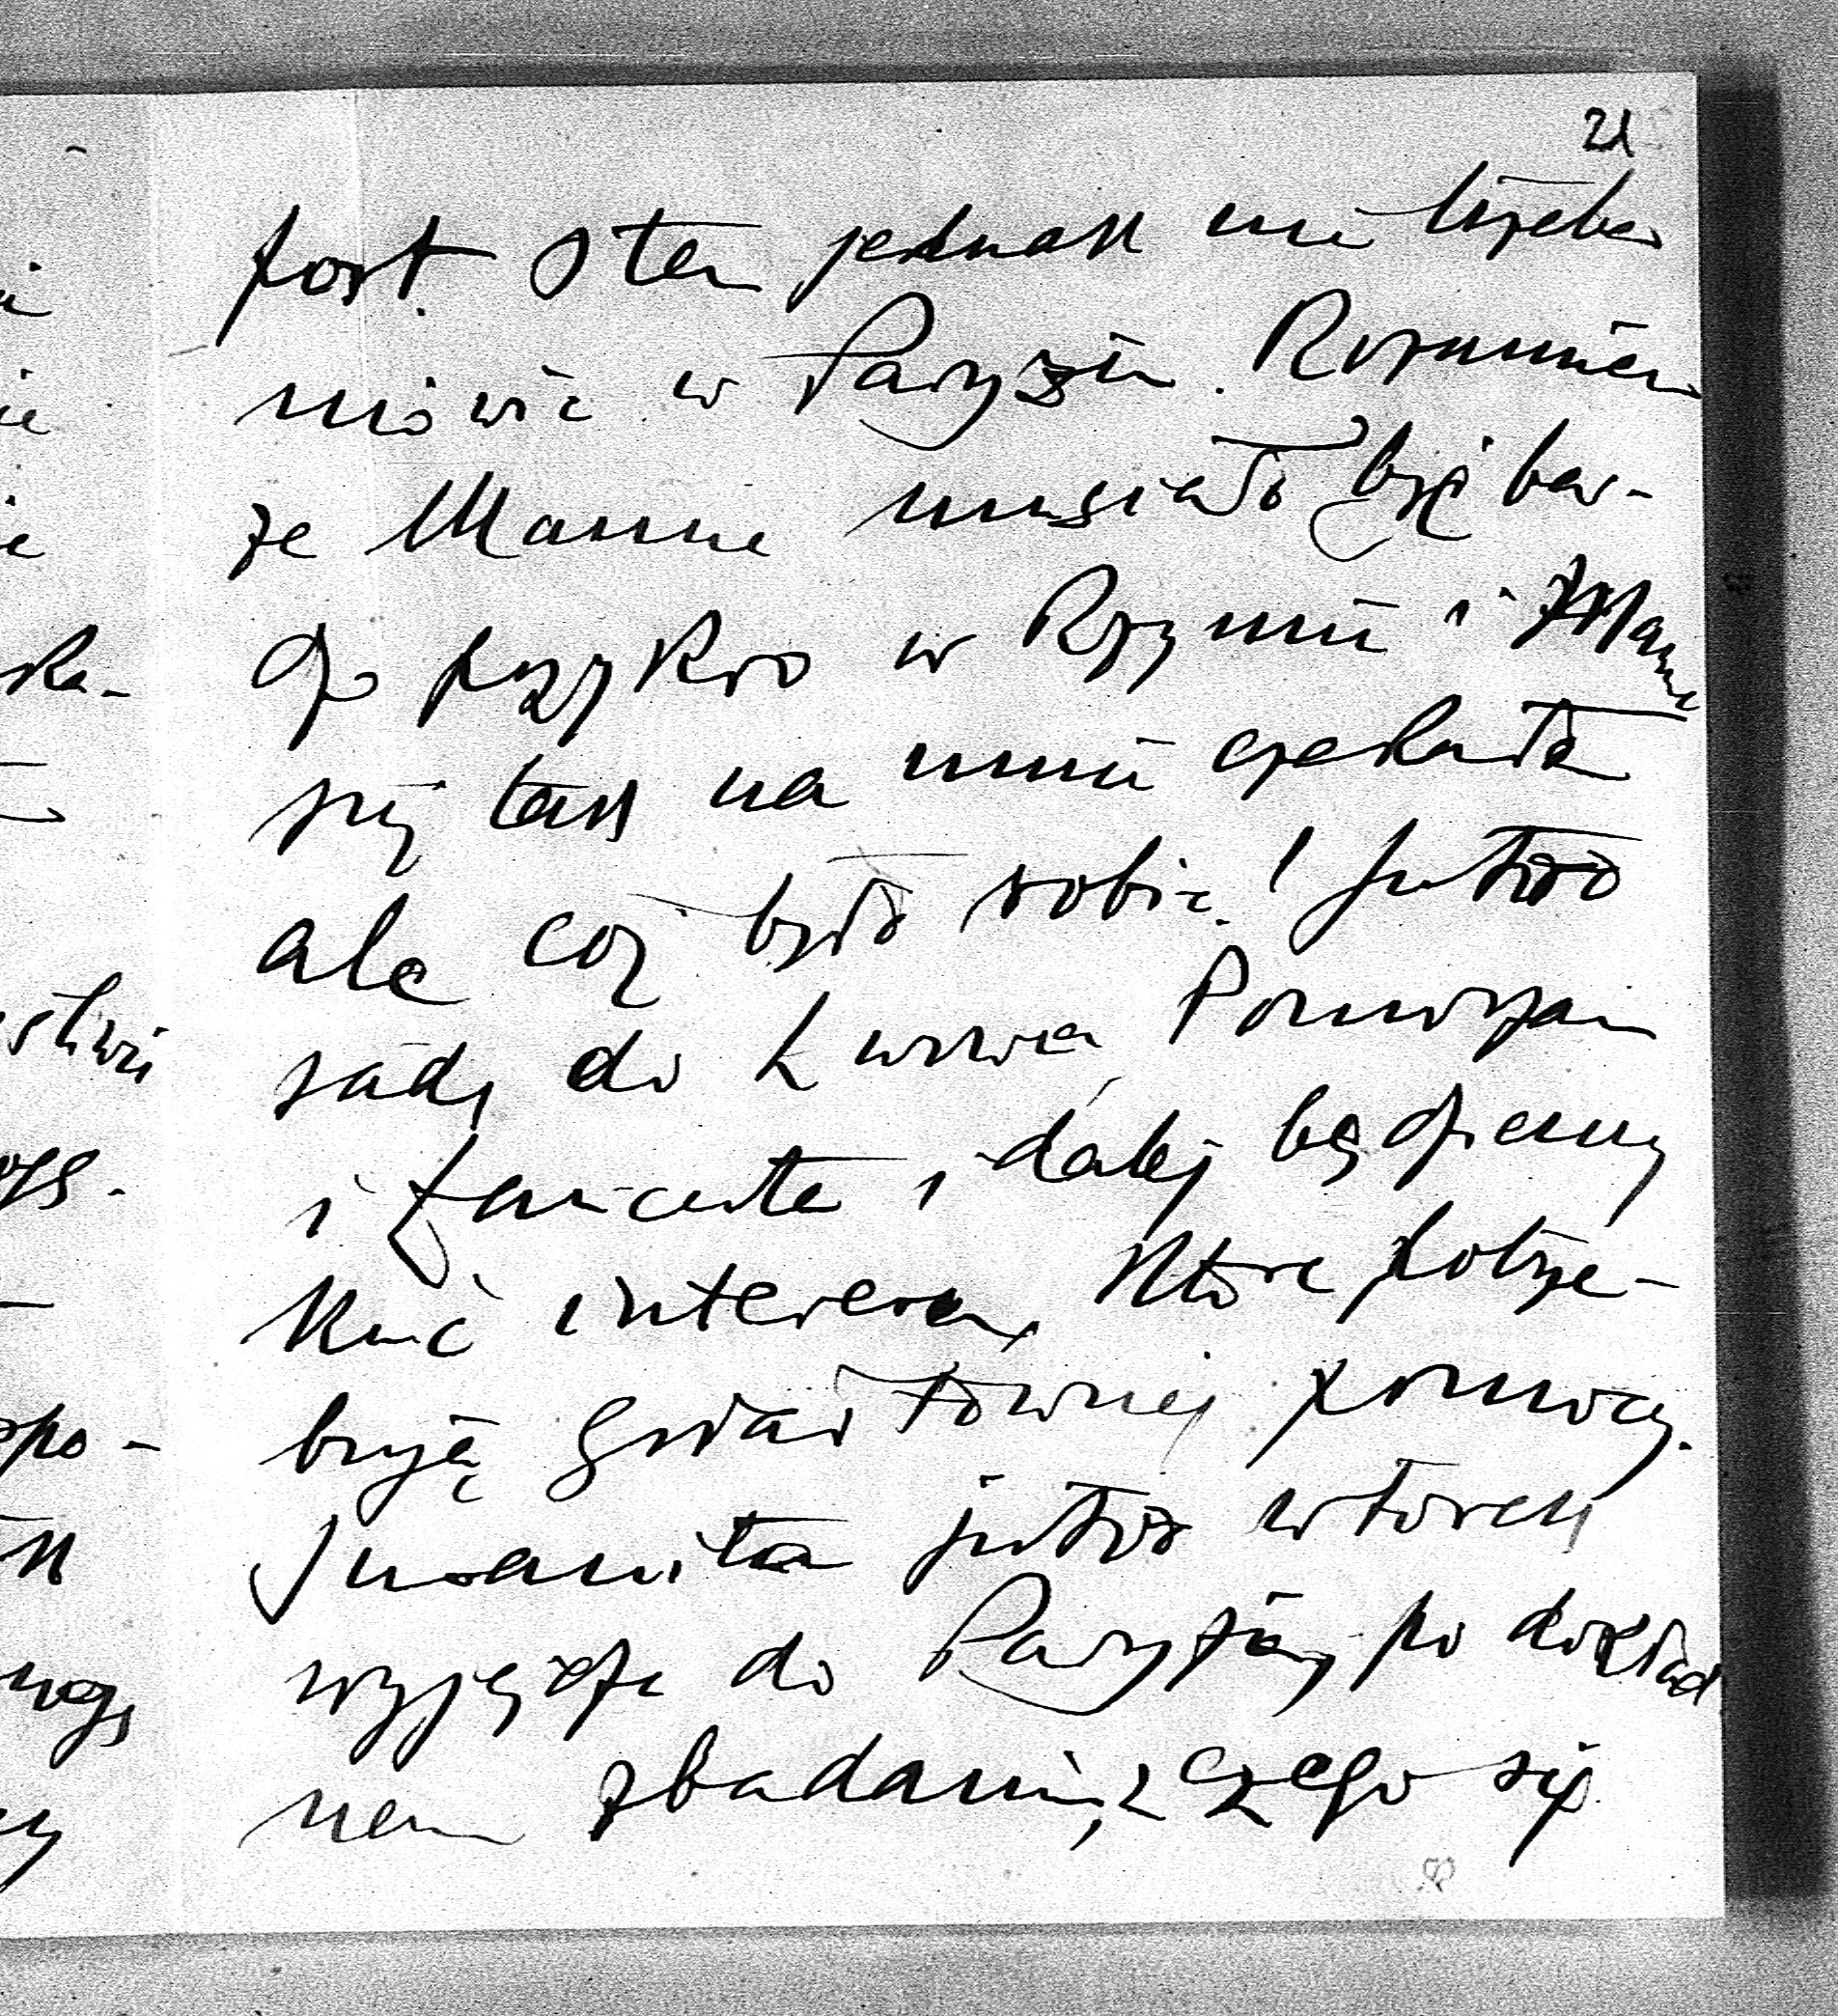 21
port. O tem jednak nie trzeba
mówić w Paryżu. Rozumiem
że Mamie musiało być bar-
dzo przykro w Rzymie i że Mama
się tak na mnie czekała
ale cóż było robić! Jutro
jadę do Lwowa, Pomorzan
i Łańcuta i dalej będziemy
kuć interesa, które potrze-
bują gwałtownej pomocy.
Juanita jutro wtorek
wyjeżdża do Paryża, po dokład
nem zbadaniu, z czego się